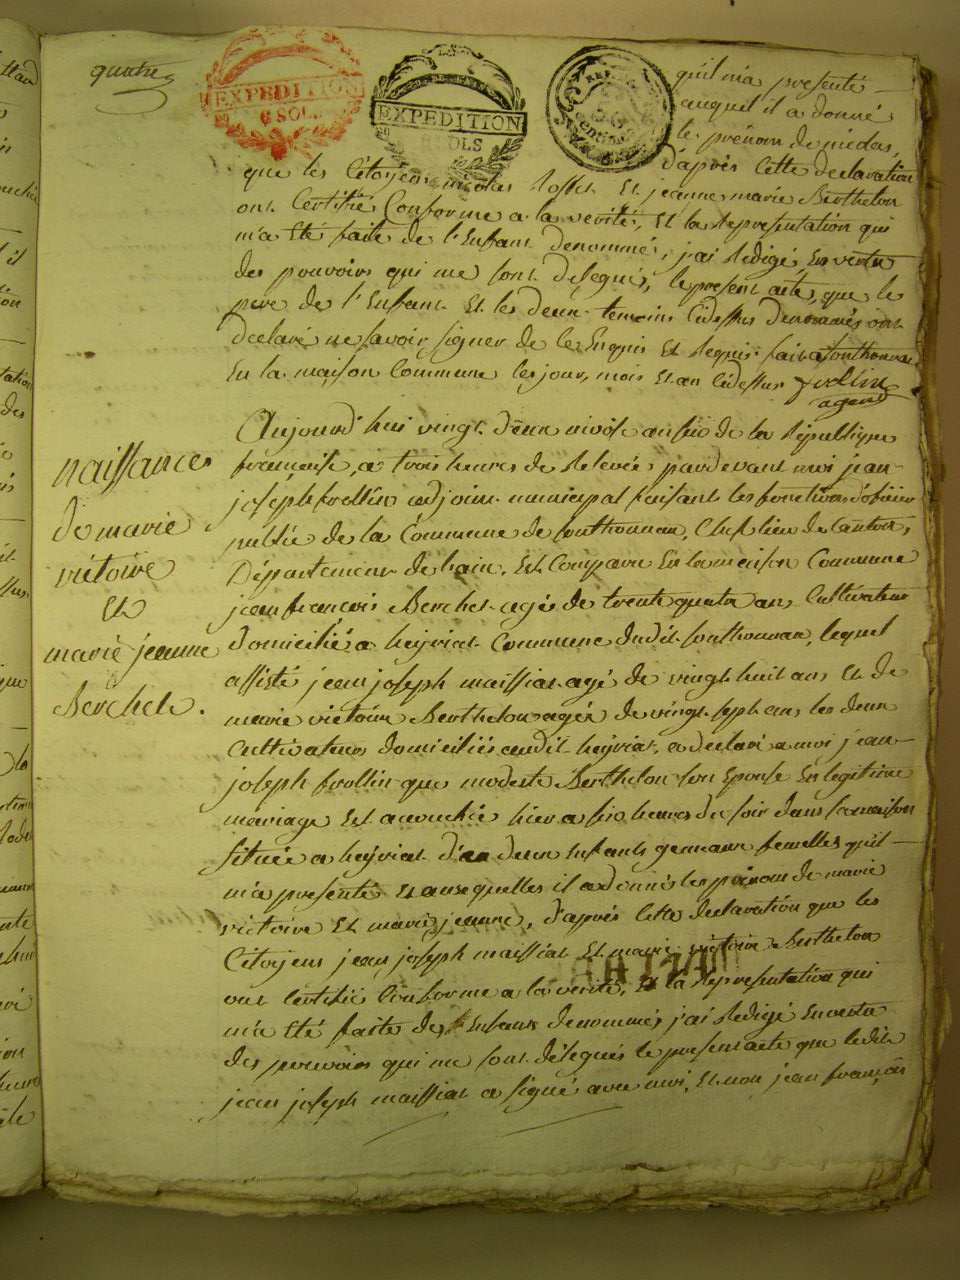 quatre
EXPEDITION
6 SOL.
EXPEDITION
SOLS
REP. FRA.
qu'il m'a presenté
auquel il a donné
le prénom de médas,
d'après cette declaration
que les Citoyens nicolas Rosset Et jeanne marie Berthelon
ont Certifié Conforme a la verité, Et la Representation qui
m'a Eté faite de l'Enfant denommé, j'ai Redigé En vertu
des pouvoirs qui me sont delegués, le present acte, que le
pere de l'Enfant Et les deux temoins Cidessus denommés ont
declaré ne savoir signer de ce Enquis Et Requis fait a Sonthonnax
En la maison Commune les jour, mois Et an Cidessus
agent
Aujourd'hui vingt deux nivôse an six de la République
française, a trois heures de Relevée, pardevant moi jean
joseph frollin adjoint municipal faisant les fonctions d'oficier
public de la Commune de Sonthonnax, Chef lieu de Canton,
Département de l'ain, Est Comparu En la maison Commune
jean françois Berchet agé de trente quatre ans Cultivateur
domicilié a heyriat Commune dudit Sonthonnax, lequel
assisté jean joseph maissiat agé de vingt huit ans Et de
marie victoire Berthelon agée de vingt sept ans les deux
Cultivateurs domiciliés audit heyriat, a declaré a moi jean
joseph frollin que modeste Berthelon son Epouse En legitime
mariage Est acouchée hier a six heures du soir dans sa maison
située a heyriat de deux Enfants gemeaux femelles qu'il
m'a presenté Et auxquelles il a donnés les prénom de marie
victoire Et marie jeanne, d'après Cette declaration que les
Citoyens jean joseph maissiat Et marie victoire Berthelon
ont Certifié Conforme a la verité, Et la Representation qui
m'a Eté faite des Enfans denommés j'ai Redigé En vertu
des pouvoirs qui me sont délegués le present acte que ledit
jean joseph maissiat a signé avec moi, Et non jean françois
naissances
de marie
victoire
Et
marie jeanne
Berchet.